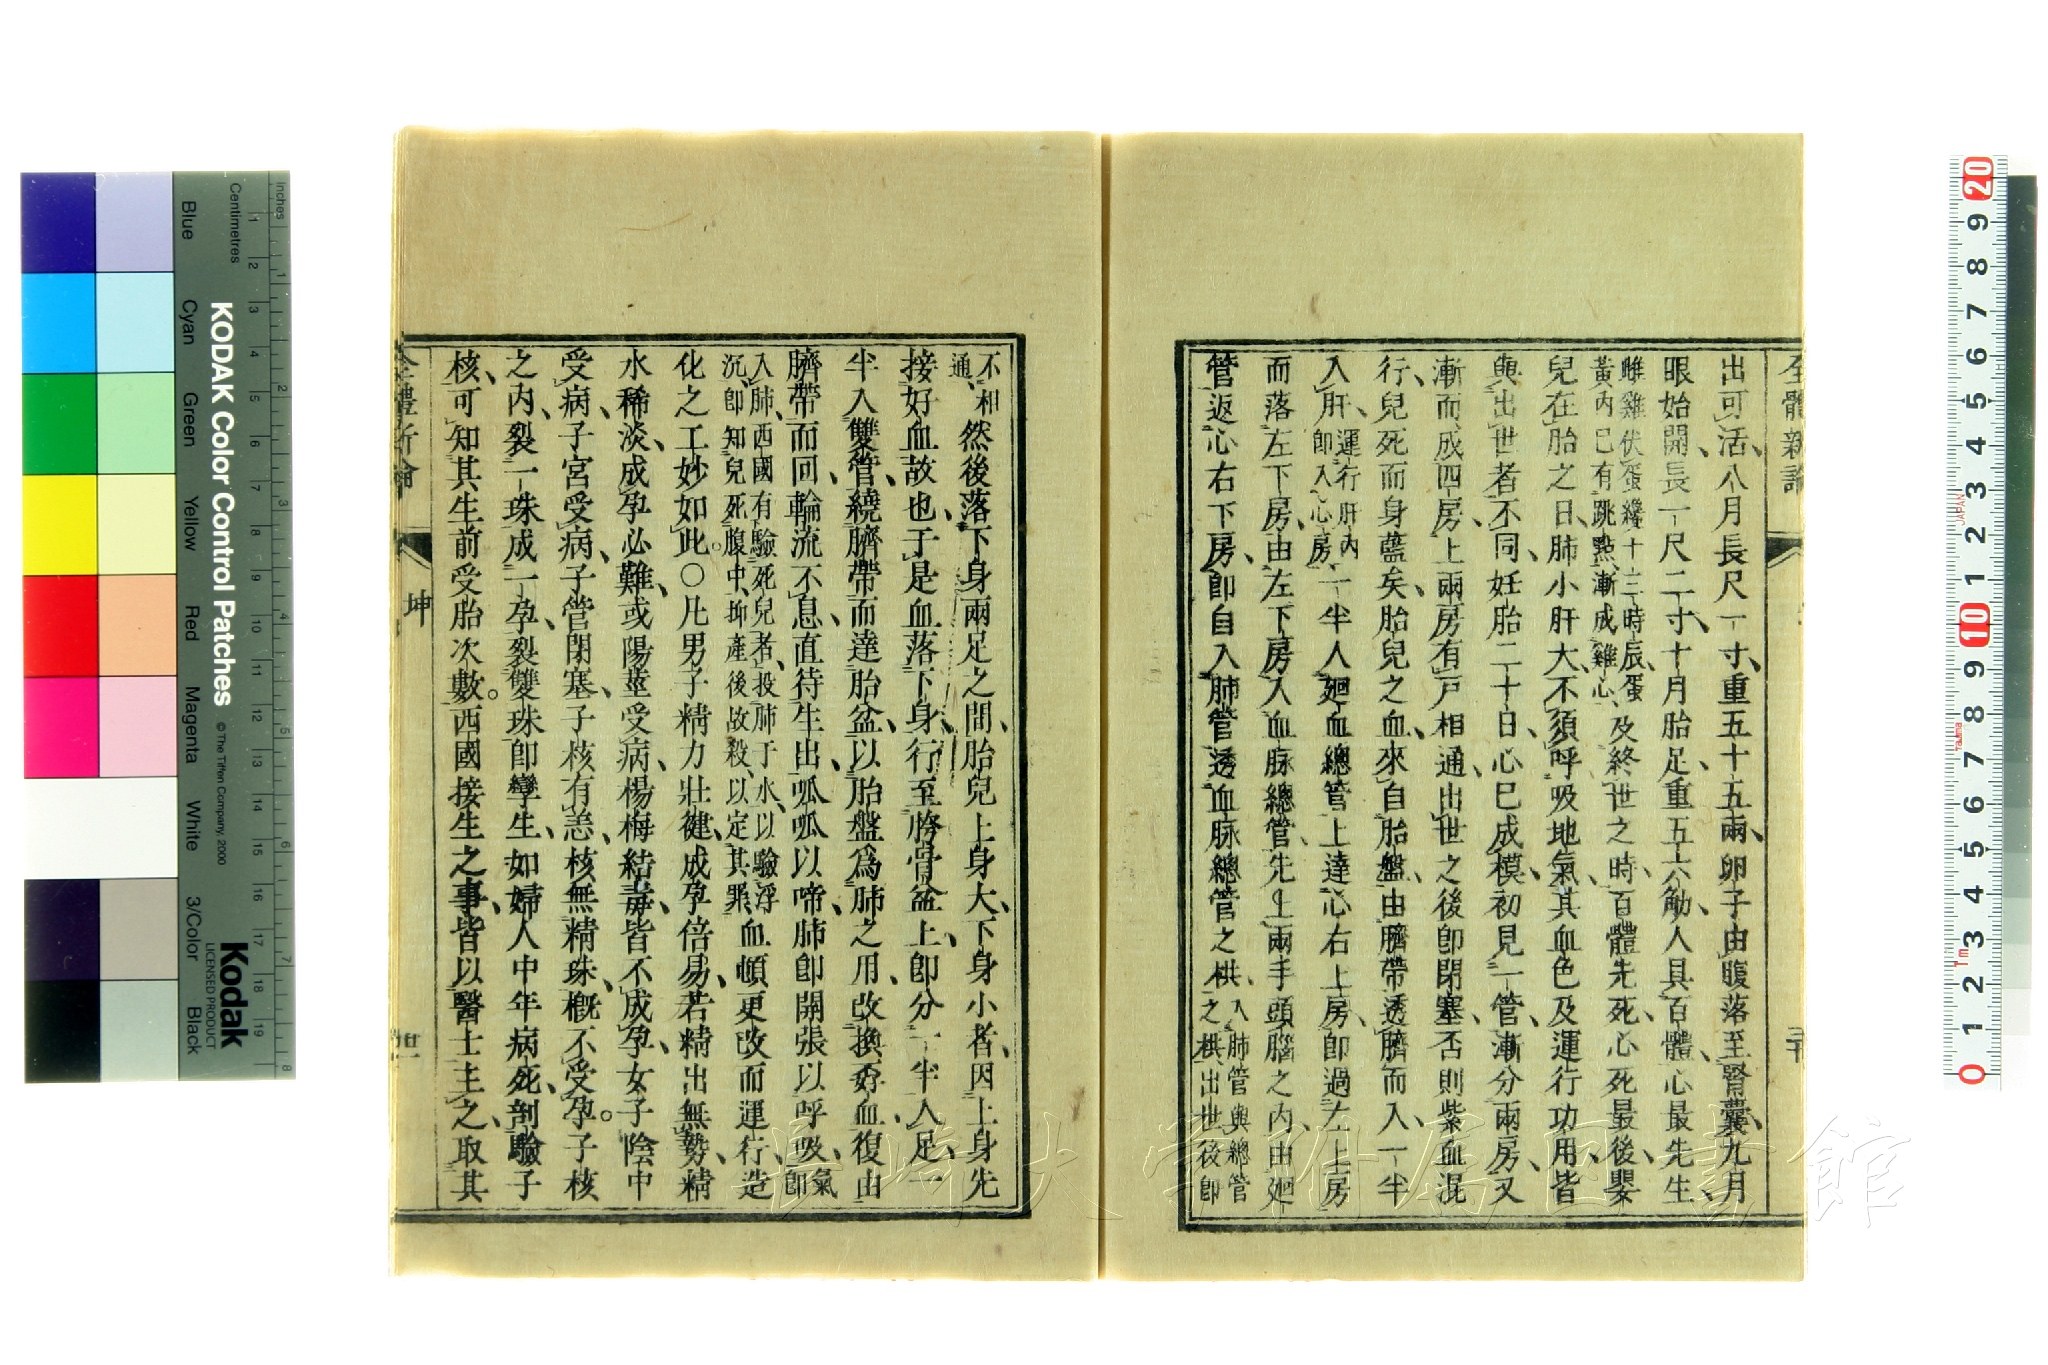 全體新論
出可活八月長尺一寸重五十五兩卵子由腹落至腎囊九月
眼始開長一尺二寸十月胎足重五六觔人具百體心最先生
雌雞伏蛋纔十三時辰蛋
黃内已有跳點漸成雞心
及終世之時百體先死心死最後嬰
兒在胎之日肺小肝大不須呼吸地氣其血色及運行功用皆
與出世者不同妊胎二十日心已成模初見一管漸分兩房又
漸而成四房上兩房有戸相通出世之後卽閉塞否則紫血混
行兒死而身藍矣胎兒之血來自胎盤由臍帶透臍而入一半
入肝
運行肝内
卽入心房
一半人廻血總管上達心右上房卽過左上房
而落左下房由左下房入血脉總管先上兩手頭腦之内由廻
管返心右下房卽自入肺管透血脉總管之栱
入肺管與總管
之栱出世後卽
不相
通
然後落下身兩足之間胎兒上身大下身小者因上身先
接好血故也于是血落下身行至胯骨盆上卽分一半入足一
半入雙管繞臍帶而達胎盆以胎盤爲肺之用改換好血復由
臍帶而回輪流不息直待生出呱呱以啼肺卽開張以呼吸氣
卽
入肺西國有驗死兒者投肺于水以驗浮
沉卽知兒死腹中抑產後故殺以定其罪
血頓更改而運行造
化之工妙如此。○凡男子精力壯健成孕倍易若精出無勢精
水稀淡成孕必難或陽莖受病楊梅結毒皆不成孕女子陰中
受病子宮受病子管閉塞子核有恙核無精珠概不受孕。子核
之内裂一珠成一孕裂雙珠卽孿生如婦人中年病死剖驗子
核可知其生前受胎次數。西國接生之事皆以醫士主之取其
坤